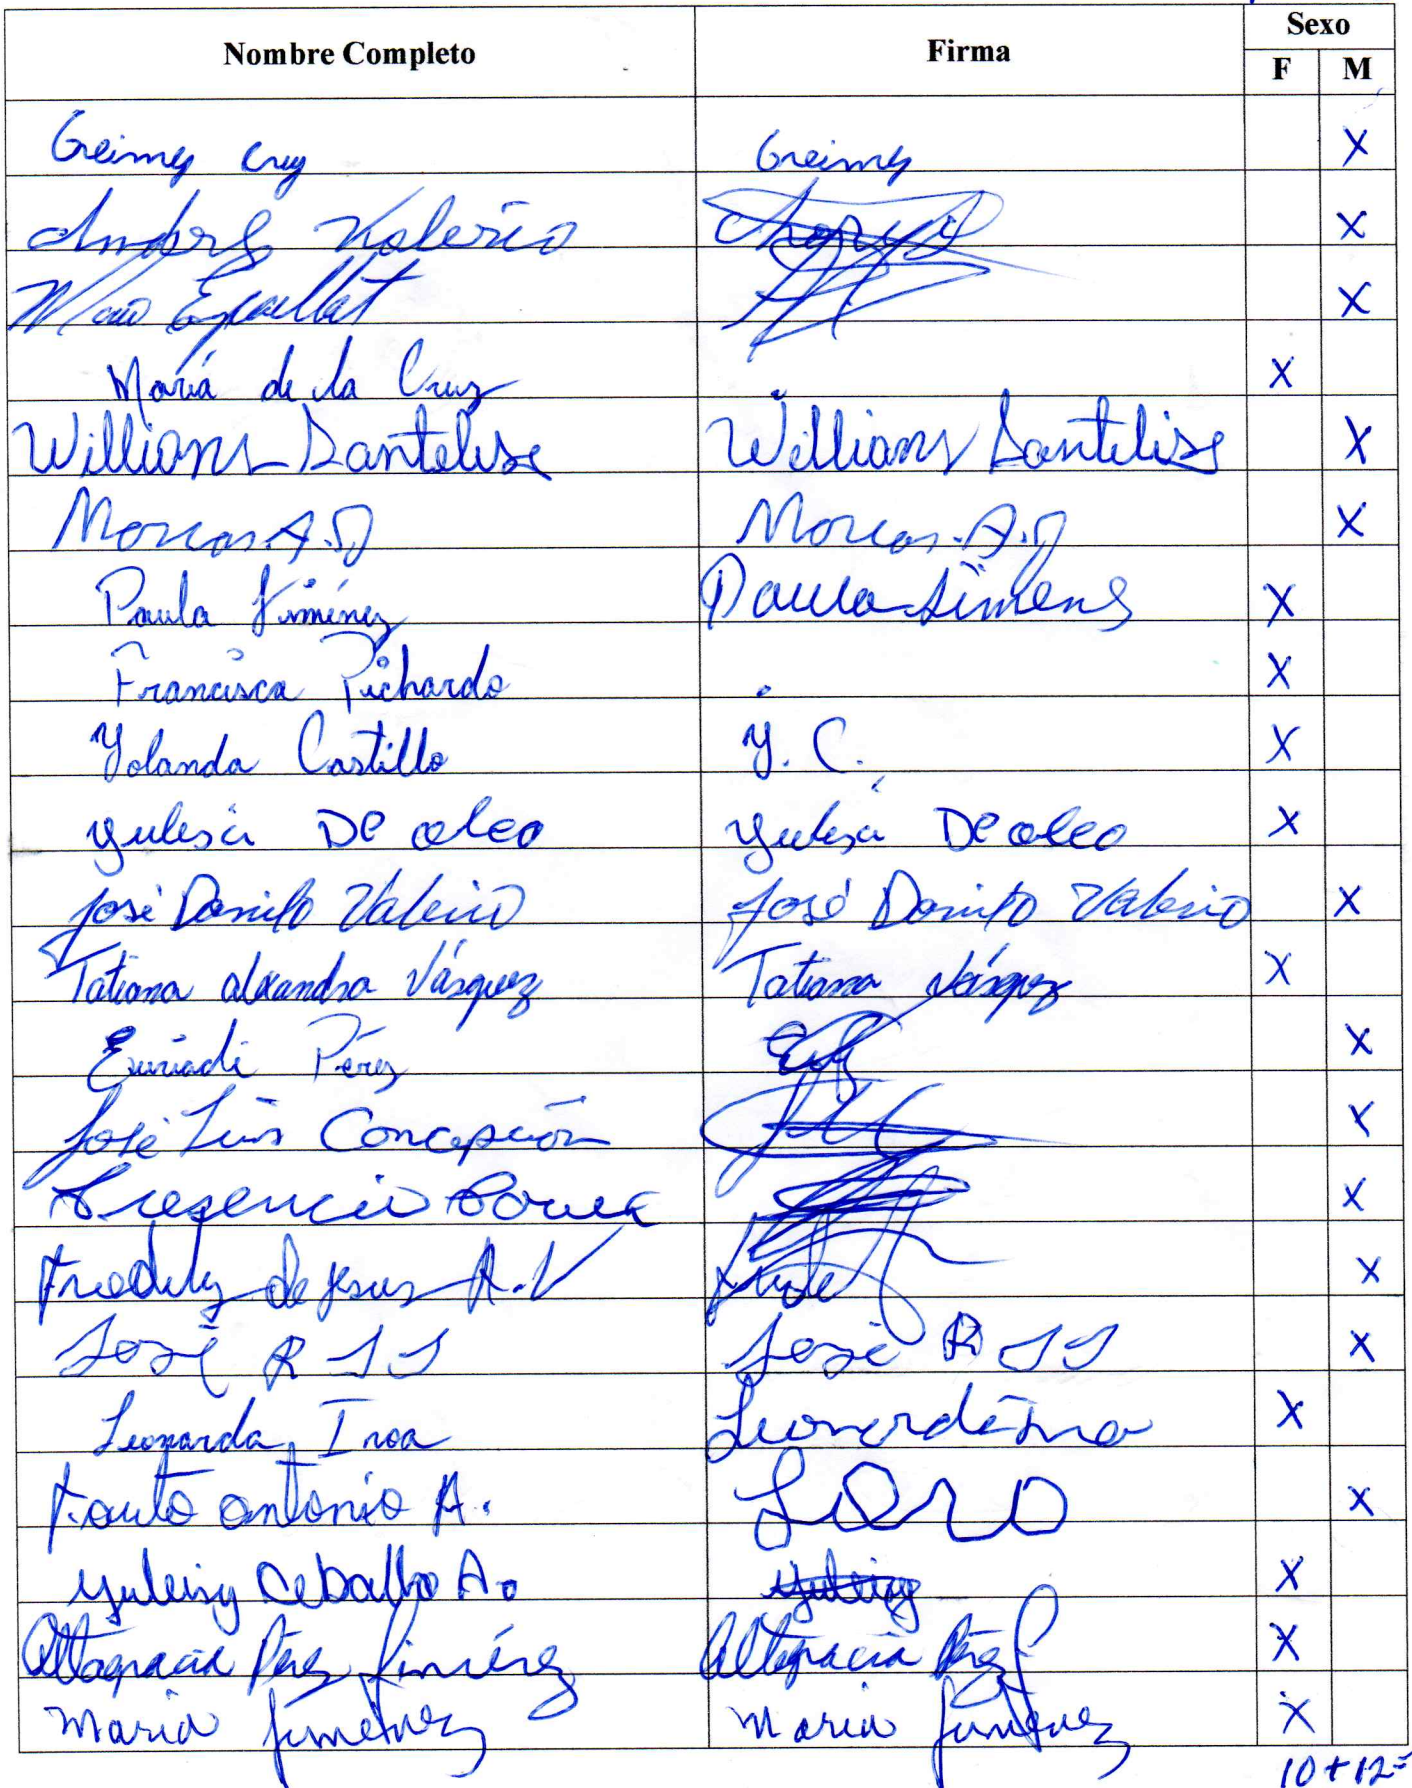 Nombre Completo Firma Sexo
F M
Greimy Cruz Greimy X
Valerio X
X
María de la Cruz . X
Willians Santelise Willians Santelise X
Marcos. A. J Marcos. A. J X
Paula Jiménez Paula Jimens X
Francisca Pichardo . X
Yolanda Castillo Y. C. X
yulesi De oleo yulesi De oleo X
José Danilo Valerio José Danilo Valerio X
Tatiana alexandra Vásquez Tatiana Vásquez X
Euriadi Pérez X
José Luis Concepción X
X
Freddy de Jesus A. V X
José R J J José R J J X
Leonarda Inoa X
Fauto antonio A. X
yuleisy Ceballo A. yuleisy X
Altagracia Pérez Jiménez Altagracia Pérez J X
Maria Jimenez Maria Jimenez X
10 + 12 =